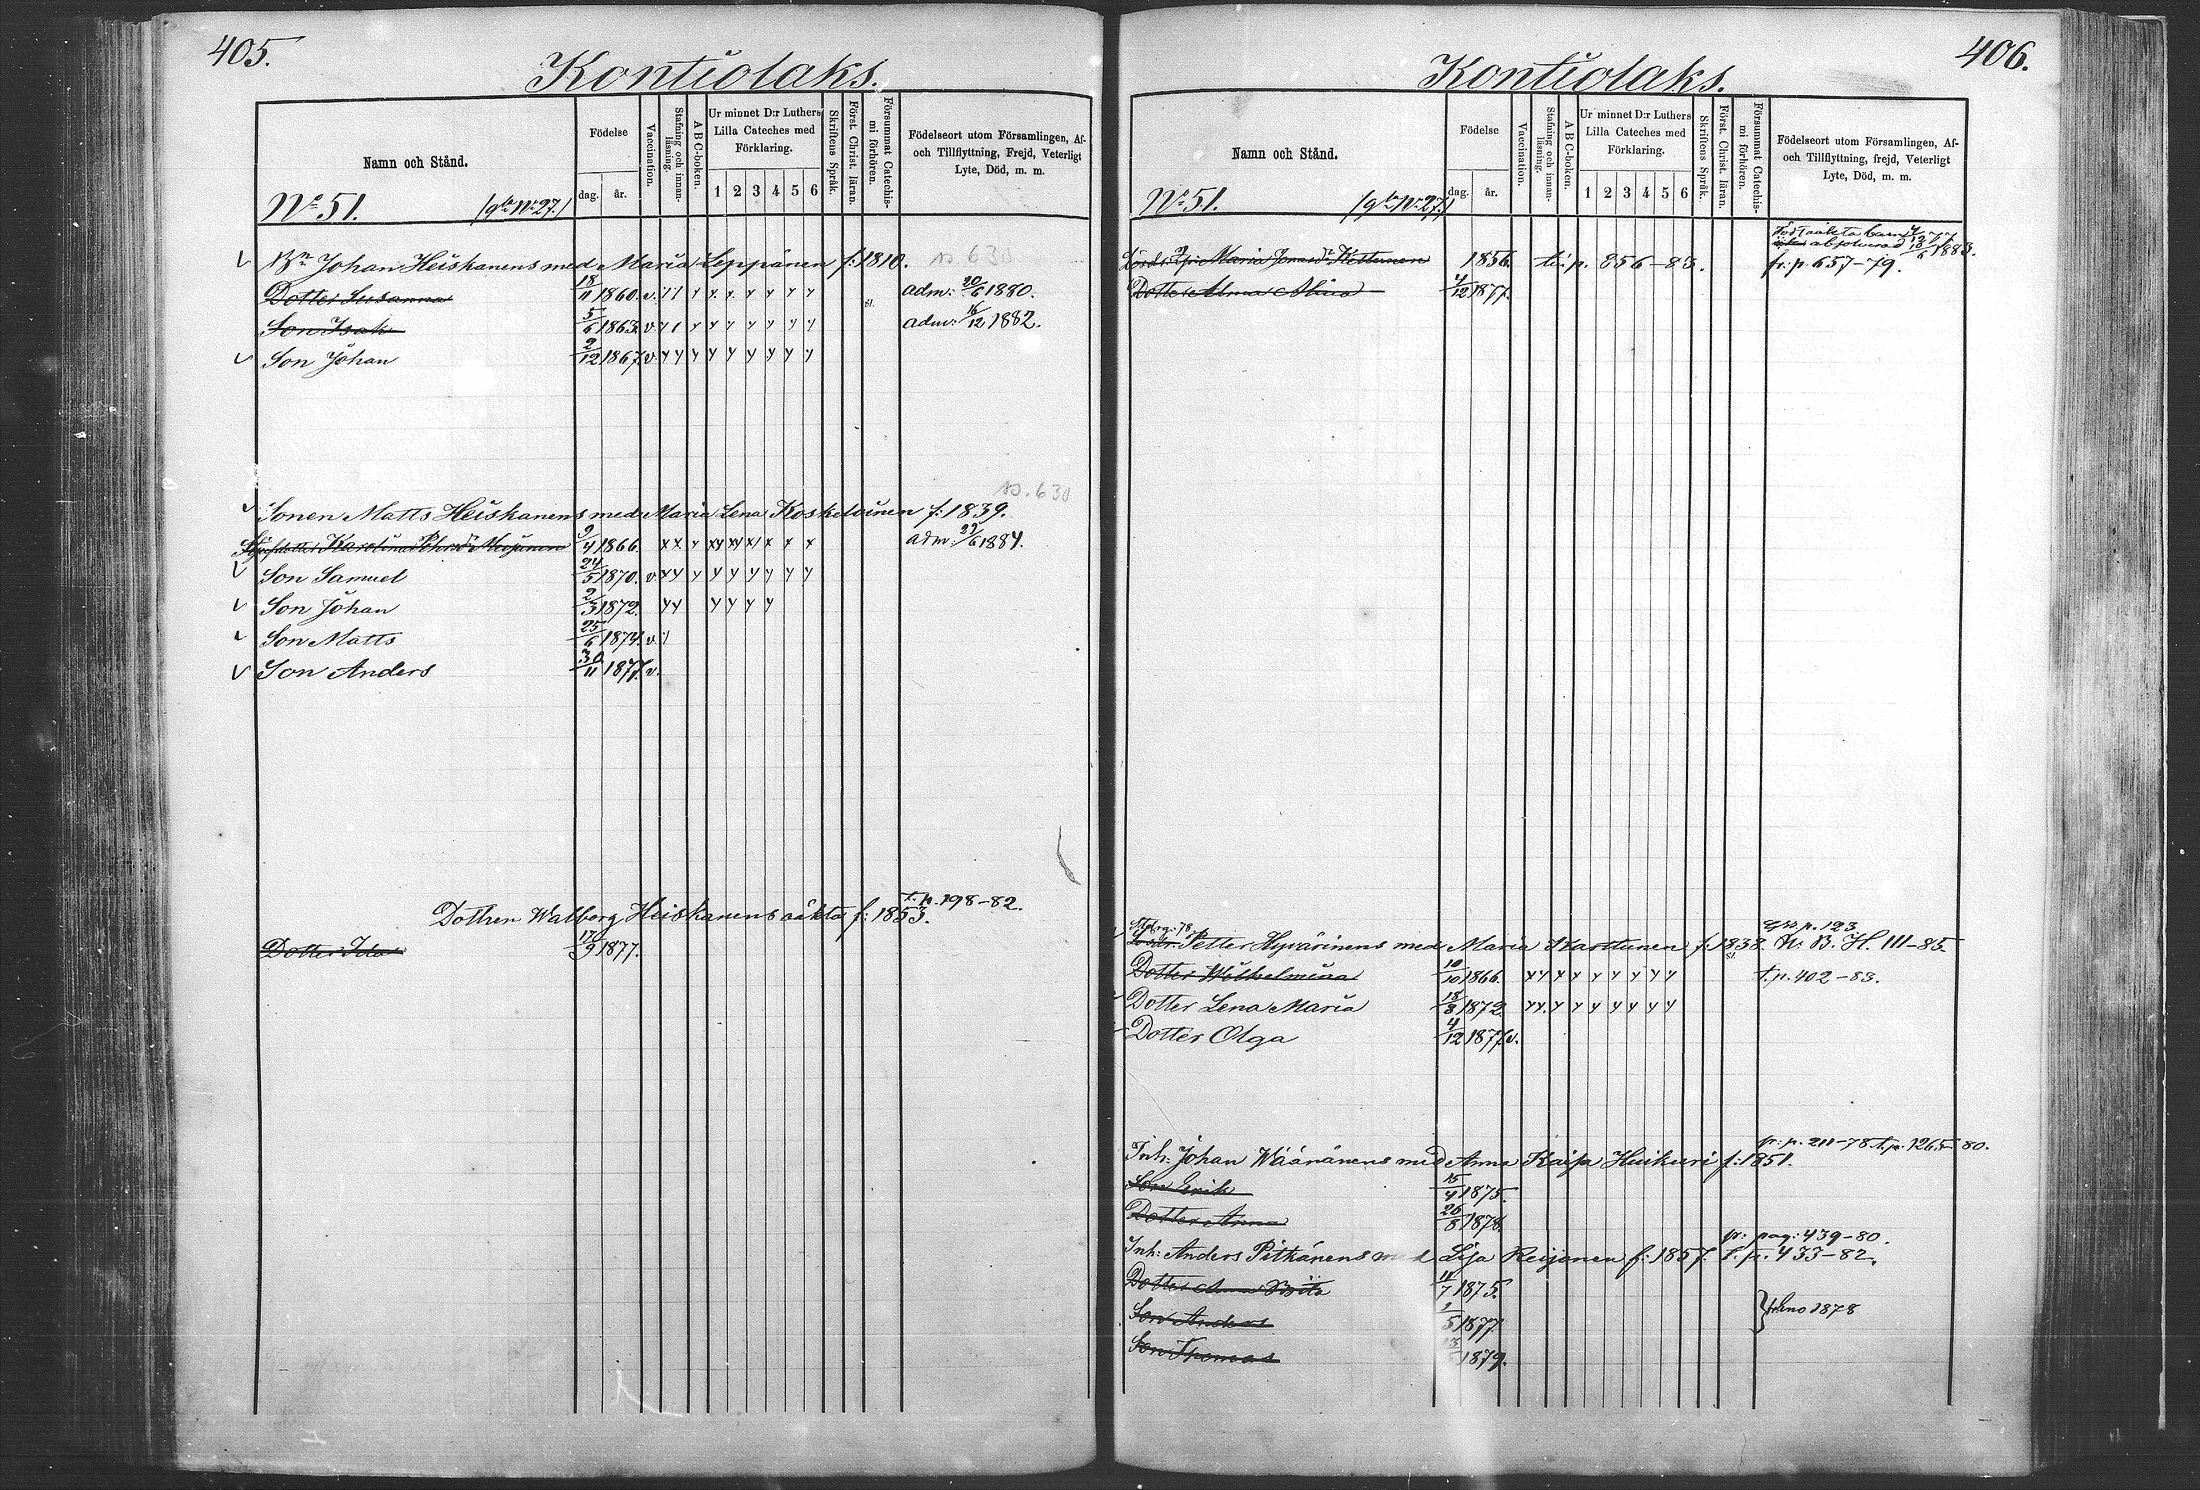 405.
Kontiolaks.
Namn och Stånd.
Födelse
dag. år.
Vaccination.
Stafning och innanläsning.
A B C-boken.
Ur minnet D:r Luthers Lilla Cateches med Förklaring.
1 2 3 4 5 6
Skriftens Språk.
Först. Christ. läran.
Försummat Catechismi förhören.
Födelseort utom Församlingen, Af- och Tillflyttning, Frejd, Veterligt Lyte, Död, m. m.
No 51. /gla No 27./
Bn Johan Heiskanens med Maria Leppänen f: 1810. no 630
Dotter Susanna 18/11 1860. v. adm: 20/6 1880.
Son Isak 5/6 1863. v. adm: 16/12 1882.
Son Johan 2/12 1867. v.
no. 630
Sonen Matts Heiskanens med Maria Lena Koskeloinen f: 1839.
Karolina 9/4 1866. adm: 1884.
Son Samuel 24/5 1870. v.
Son Johan 2/3 1872.
Son Matts 25/6 1874. v.
Son Anders 30/11 1877. v.
t. p. 198-82.
Dottren Walborg Heiskanens oäkta f: 1853.
Dotter Ida 17/9 1877.
406.
Kontiolaks.
Namn och Stånd.
Födelse
dag. år.
Vaccination.
Stafning och innanläsning.
A B C-boken.
Ur minnet D:r Luthers Lilla Cateches med Förklaring.
1 2 3 4 5 6
Skriftens Språk.
Först. Christ. läran.
Försummat Catechismi förhören.
Födelseort utom Församlingen, Af- och Tillflyttning, frejd, Veterligt Lyte, Död, m. m.
No 51. /gla No 27./
absolverad 1883.
Maria Jonasdr Kettunen 1856. t: p. 856-83. fr: p. 657-79.
Dotter Alma Alina 4/12 1877.
p. 123
Petter Hyvärinens med Maria Karttunen f: 1838. N: B. H. 111-85
Dotter Wilhelmina 10/10 1866. t. p. 402-83.
Dotter Lena Maria 18/8 1872.
Dotter Olga 4/12 1877. v.
fr: p. 211-78. t. p. 1265-80.
Inh: Johan Wäänänens med Anna Kaisa Huikuri f: 1851.
Son Erik 15/4 1875.
Dotter Anna 26/8 1878.
fr: pag: 439-80.
Inh: Anders Pitkänens med Lisa Reijonen f: 1857. t. p. 433-82.
Dotter Anna Brita 11/7 1875.
Son Anders 1/5 1877. fr Eno 1878
Son Thomas 1879.